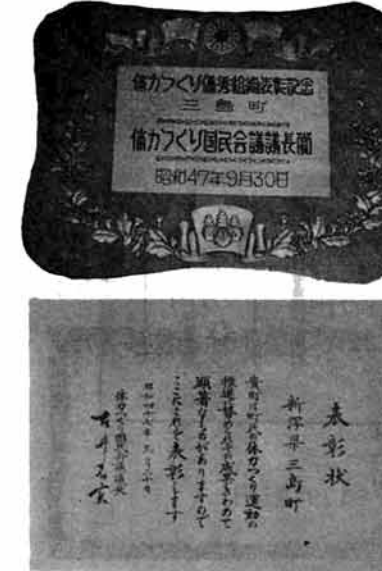 体力つくり優秀組織表彰記念
三島町
体力つくり国民会議議長賞
昭和47年9月30日
表彰状
新潟県三島町
貴町は町民の体力つくり運動の
推進に努め其の成果きわめて
顕著なものがありますので
ここにこれを表彰します
昭和四十七年九月三十日
体力つくり国民会議議長